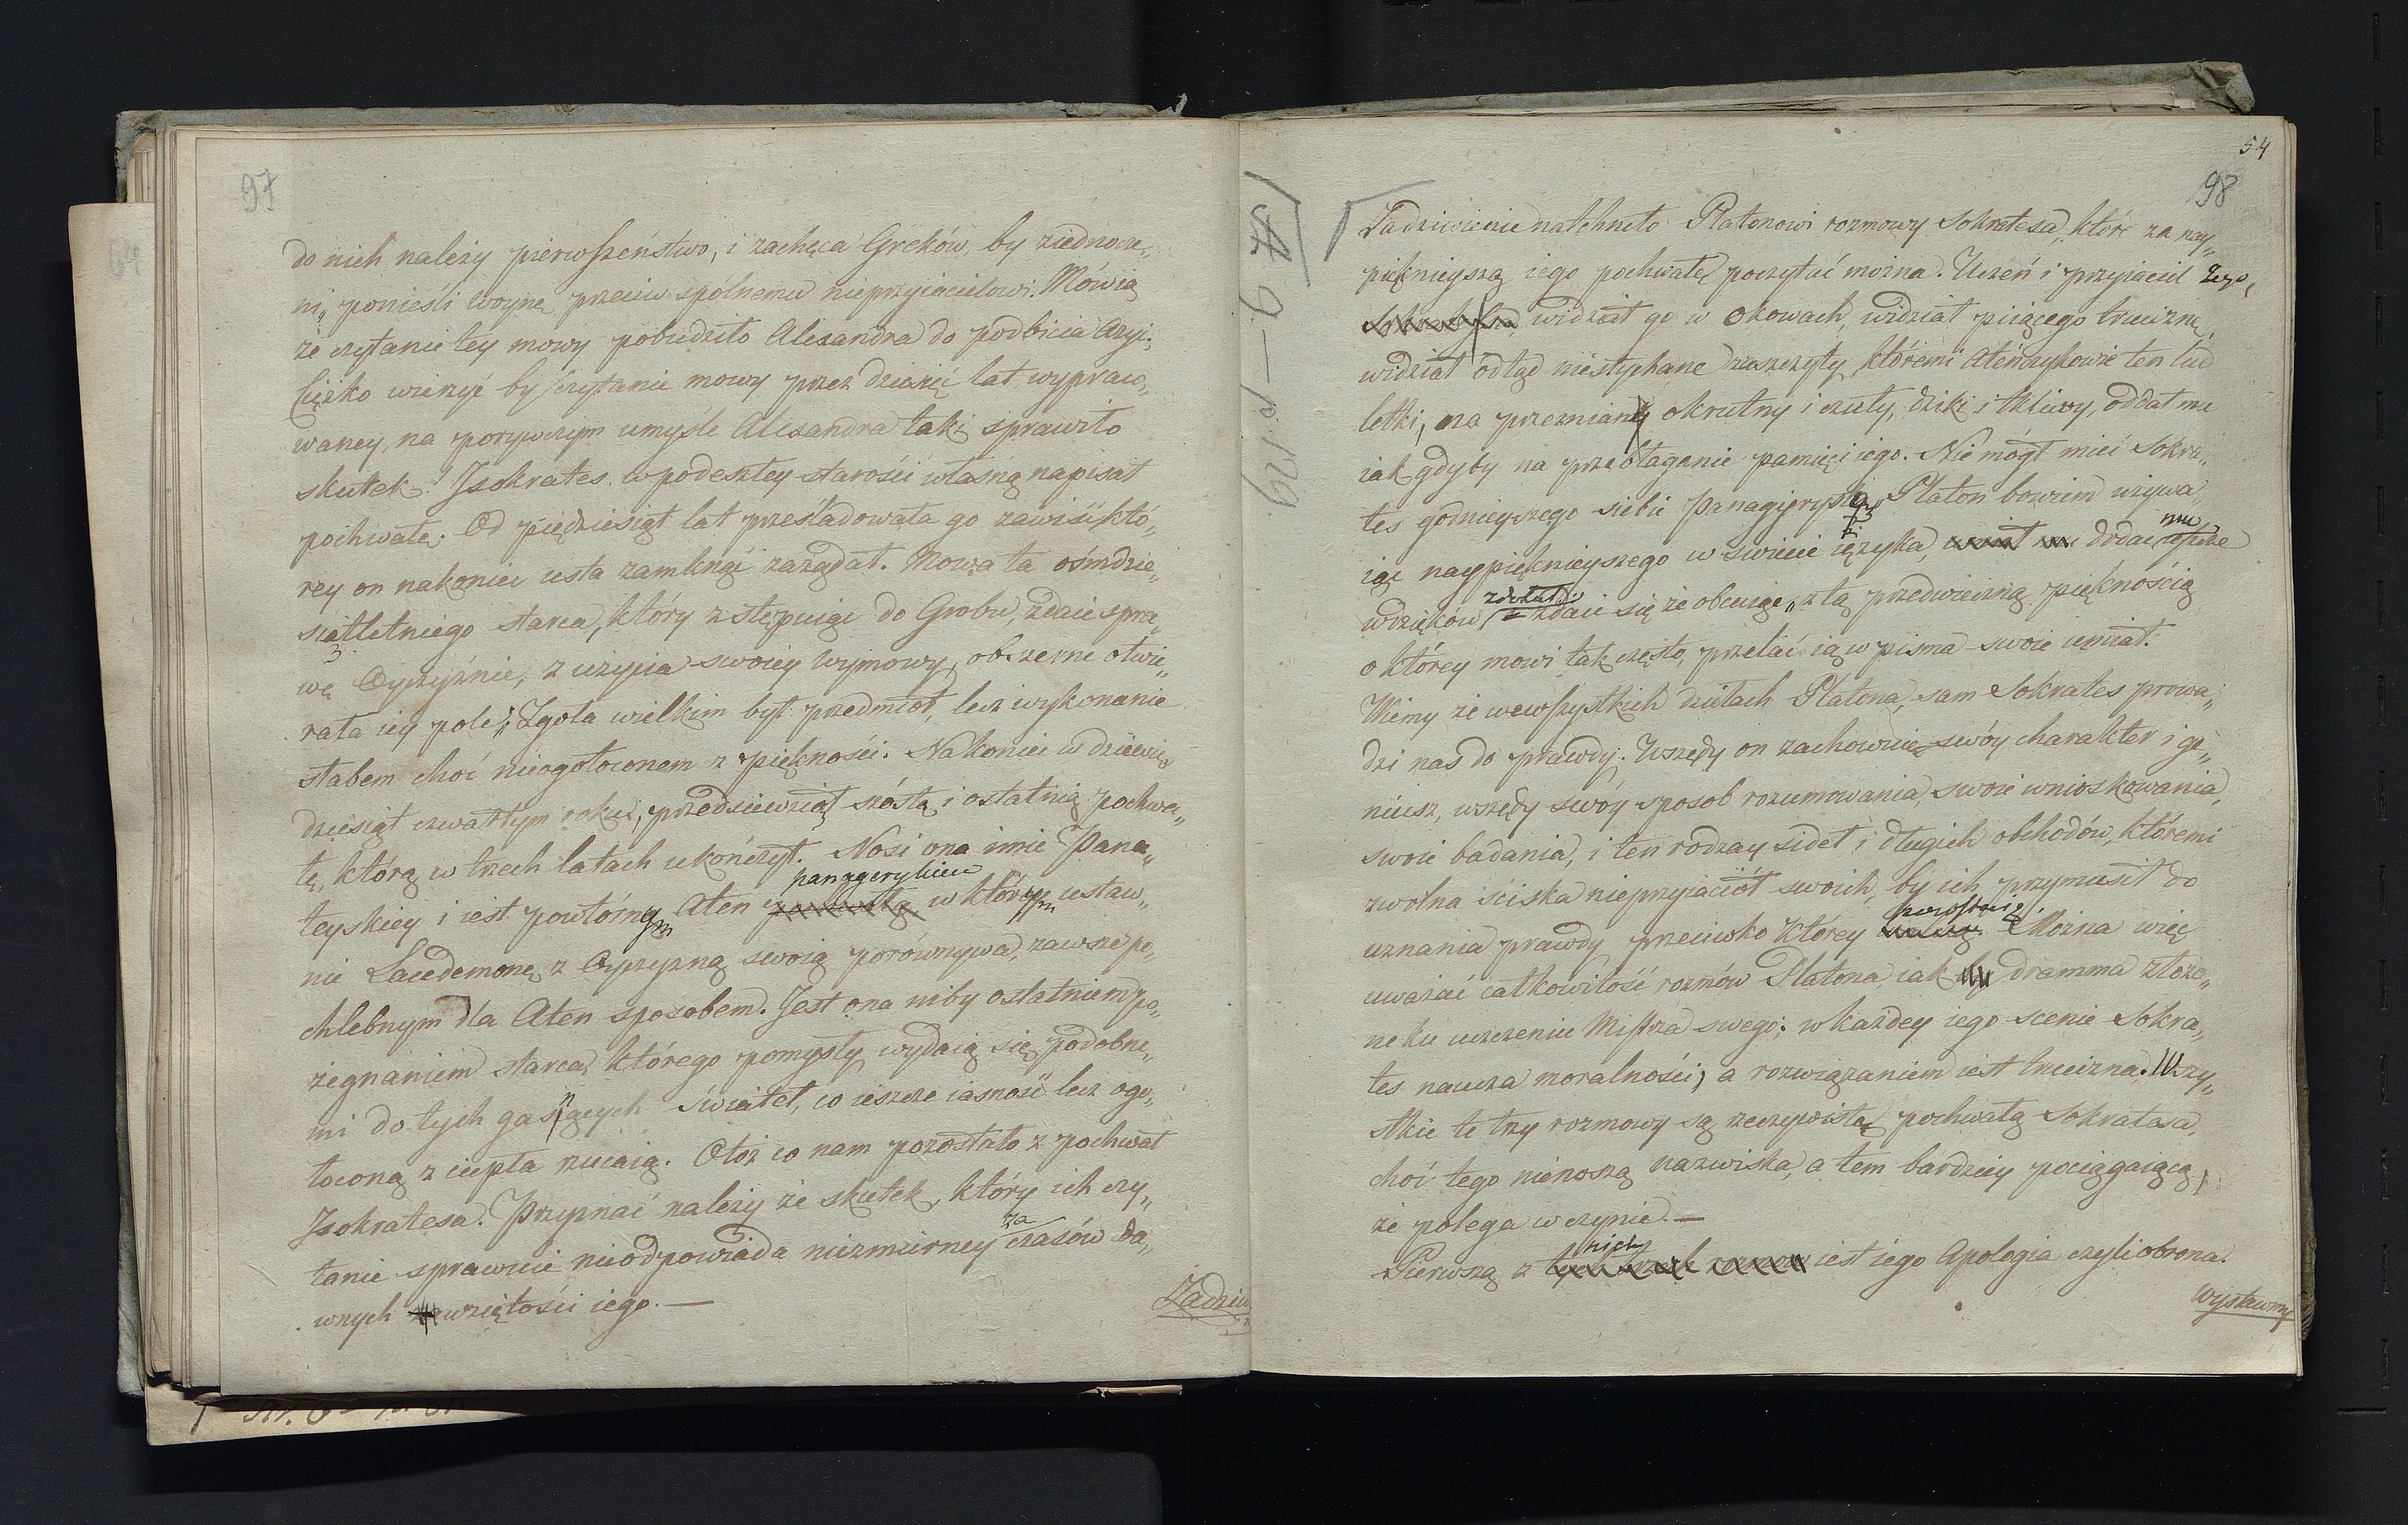 97
do nich należy pierwszeństwo, i zachęca Greków, by ziednocze„
ni, ponieśli woynę przeciw spólnemu nieprzyiacielowi. Mówią
że czytanie tey mowy pobudziło Alexandra do podbicia Azyi.
Ciężko wierzyć by czytanie mowy przez dziesięć lat wypraco„
waney, na porywczym umyśle Alexandra taki sprawiło
skutek. Isokrates w podeszłey starości własną napisał
pochwałę. Od pięćdziesiąt lat prześladowała go zawiść któ„
rey on nakoniec usta zamknąć zażądał. Mowa ta ośmdzie„
siątletniego starca, który zstępuiąc do Grobu, zdaie spra„
wę Oyczyznie, z użycia swoiey wymowy, obszerne otwie„
rała iey pole; Zgoła wielkim był przedmiot, lecz wykonanie
słabem choć nieogołoconem z piękności. Nakoniec w dziewię„
dziesiąt czwartym roku, przedsiewziął szóstą i ostatnią pochwa„
łę, którą w trzech latach ukończył. Nosi ona imie Pana„
panegerykiem
teyskiey i iest powtórnym Aten w którym ustaw„
nie Lacedemonę z Oyczyzną swoią porównywa, zawsze po„
chlebnym dla Aten sposobem. Jest ona niby ostatniem po„
żegnaniem starca, którego pomysły wydaią się podobne„
mi do tych gasnących świateł, co ieszcze iasność lecz ogo„
łoconą z ciepła rzucaią. Otóż co nam pozostało z pochwał
Isokratesa. Przyznać należy że skutek, który ich czy„
za
tanie sprawuie nieodpowiada niezmierney czasów da„
wnych wziętości iego. —
Zadziw
54
98
Zadziwienie natchneło Platonowi rozmowy Sokratesa, które za nay„
pięknieyszą iego pochwałę poczytać można. Uczeń i przyiaciel tego,
widział go w okowach, widział piiącego truciznę,
widział odtąd niesłychane zaszczyty, któremi Ateńczykowie ten lud
letki, na przemiany okrutny i czuły, dziki i tkliwy, oddał mu
iak gdyby na przebłaganie pamięci iego. Nie mógł mieć Sokra„
tes godnieyszego siebie Panagirysty, Platon bowiem używa„
iąc naypięknieyszego w swiecie ięzyka, dodać mu
zdołał;
wdzięków zdaie się że obcuiąc z tą przedwieczną pięknością
o którey mowi tak często, przelać ią w pisma swoie umiał.
Wiemy że wewszystkich dziełach Platona, sam Sokrates prowa„
dzi nas do prawdy. Wszędy on zachowuie swóy charakter i ge„
niusz, wszędy swóy sposob rozumowania, swoie wnioskowania,
swoie badania, i ten rodzay sideł i długich obchodów, któremi
zwolna ściska nieprzyiaciół swoich, by ich przymusił do
uznania prawdy przeciwko którey powstaią. Można więc
uważać całkowitość rozmów Platona, iak dramma złożo„
ne ku uczczeniu Mistrza swego; w każdey iego scenie Sokra„
tes naucza moralności, a rozwiązaniem iest trucizna. Wszy„
stkie te trzy rozmowy są rzeczywistą pochwałą Sokratasa,
choć tego nienoszą nazwiska, a tem bardziey pociągaiącą,
że polega w czynie. —
nich
Pierwszą z iest iego Apologia czyli obrona.
Wystawmy